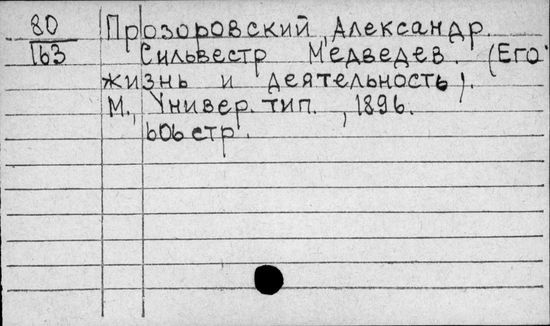 80 Прозоровский, Александр.
163 Сильвестр Медведев. (Его
жизнь и деятельность).
М., Универ. тип., 1896.
606 стр.